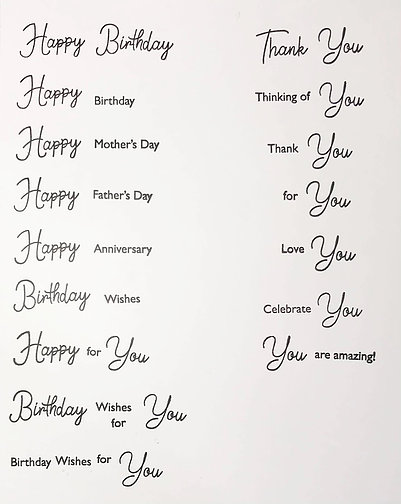 Happy Birthday
Happy Birthday
Happy Mother's Day
Happy Father's Day
Happy Anniversary
Birthday Wishes
Happy for You
Birthday Wishes for You
Birthday Wishes for You
Thank You
Thinking of You
Thank You
for You
Love You
Celebrate You
You are amazing!